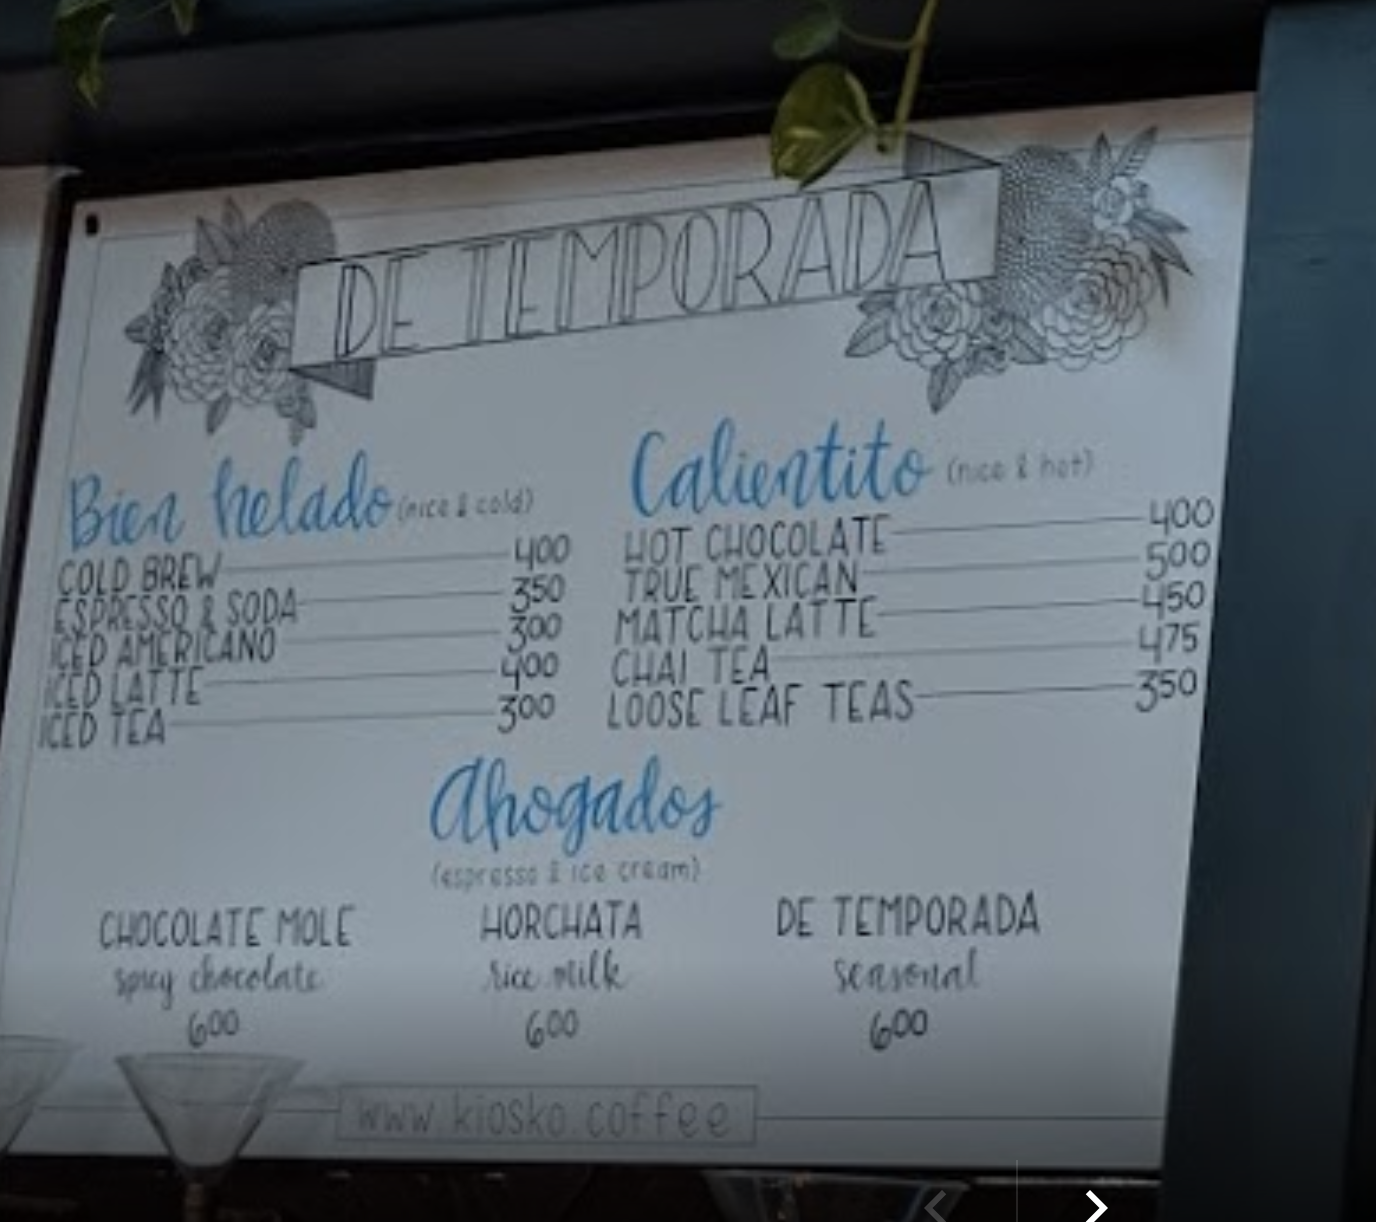 DE TEMPORADA
Bien helado (nice & cold)
COLD BREW 400
ESPRESSO & SODA 350
ICED AMERICANO 300
ICED LATTE 400
ICED TEA 300
Calientito (nice & hot)
HOT CHOCOLATE 400
TRUE MEXICAN 500
MATCHA LATTE 450
CHAI TEA 475
LOOSE LEAF TEAS 350
Ahogados
(espresso & ice cream)
CHOCOLATE MOLE
spicy chocolate
600
HORCHATA
rice milk
600
DE TEMPORADA
seasonal
600
www.kiosko.coffee